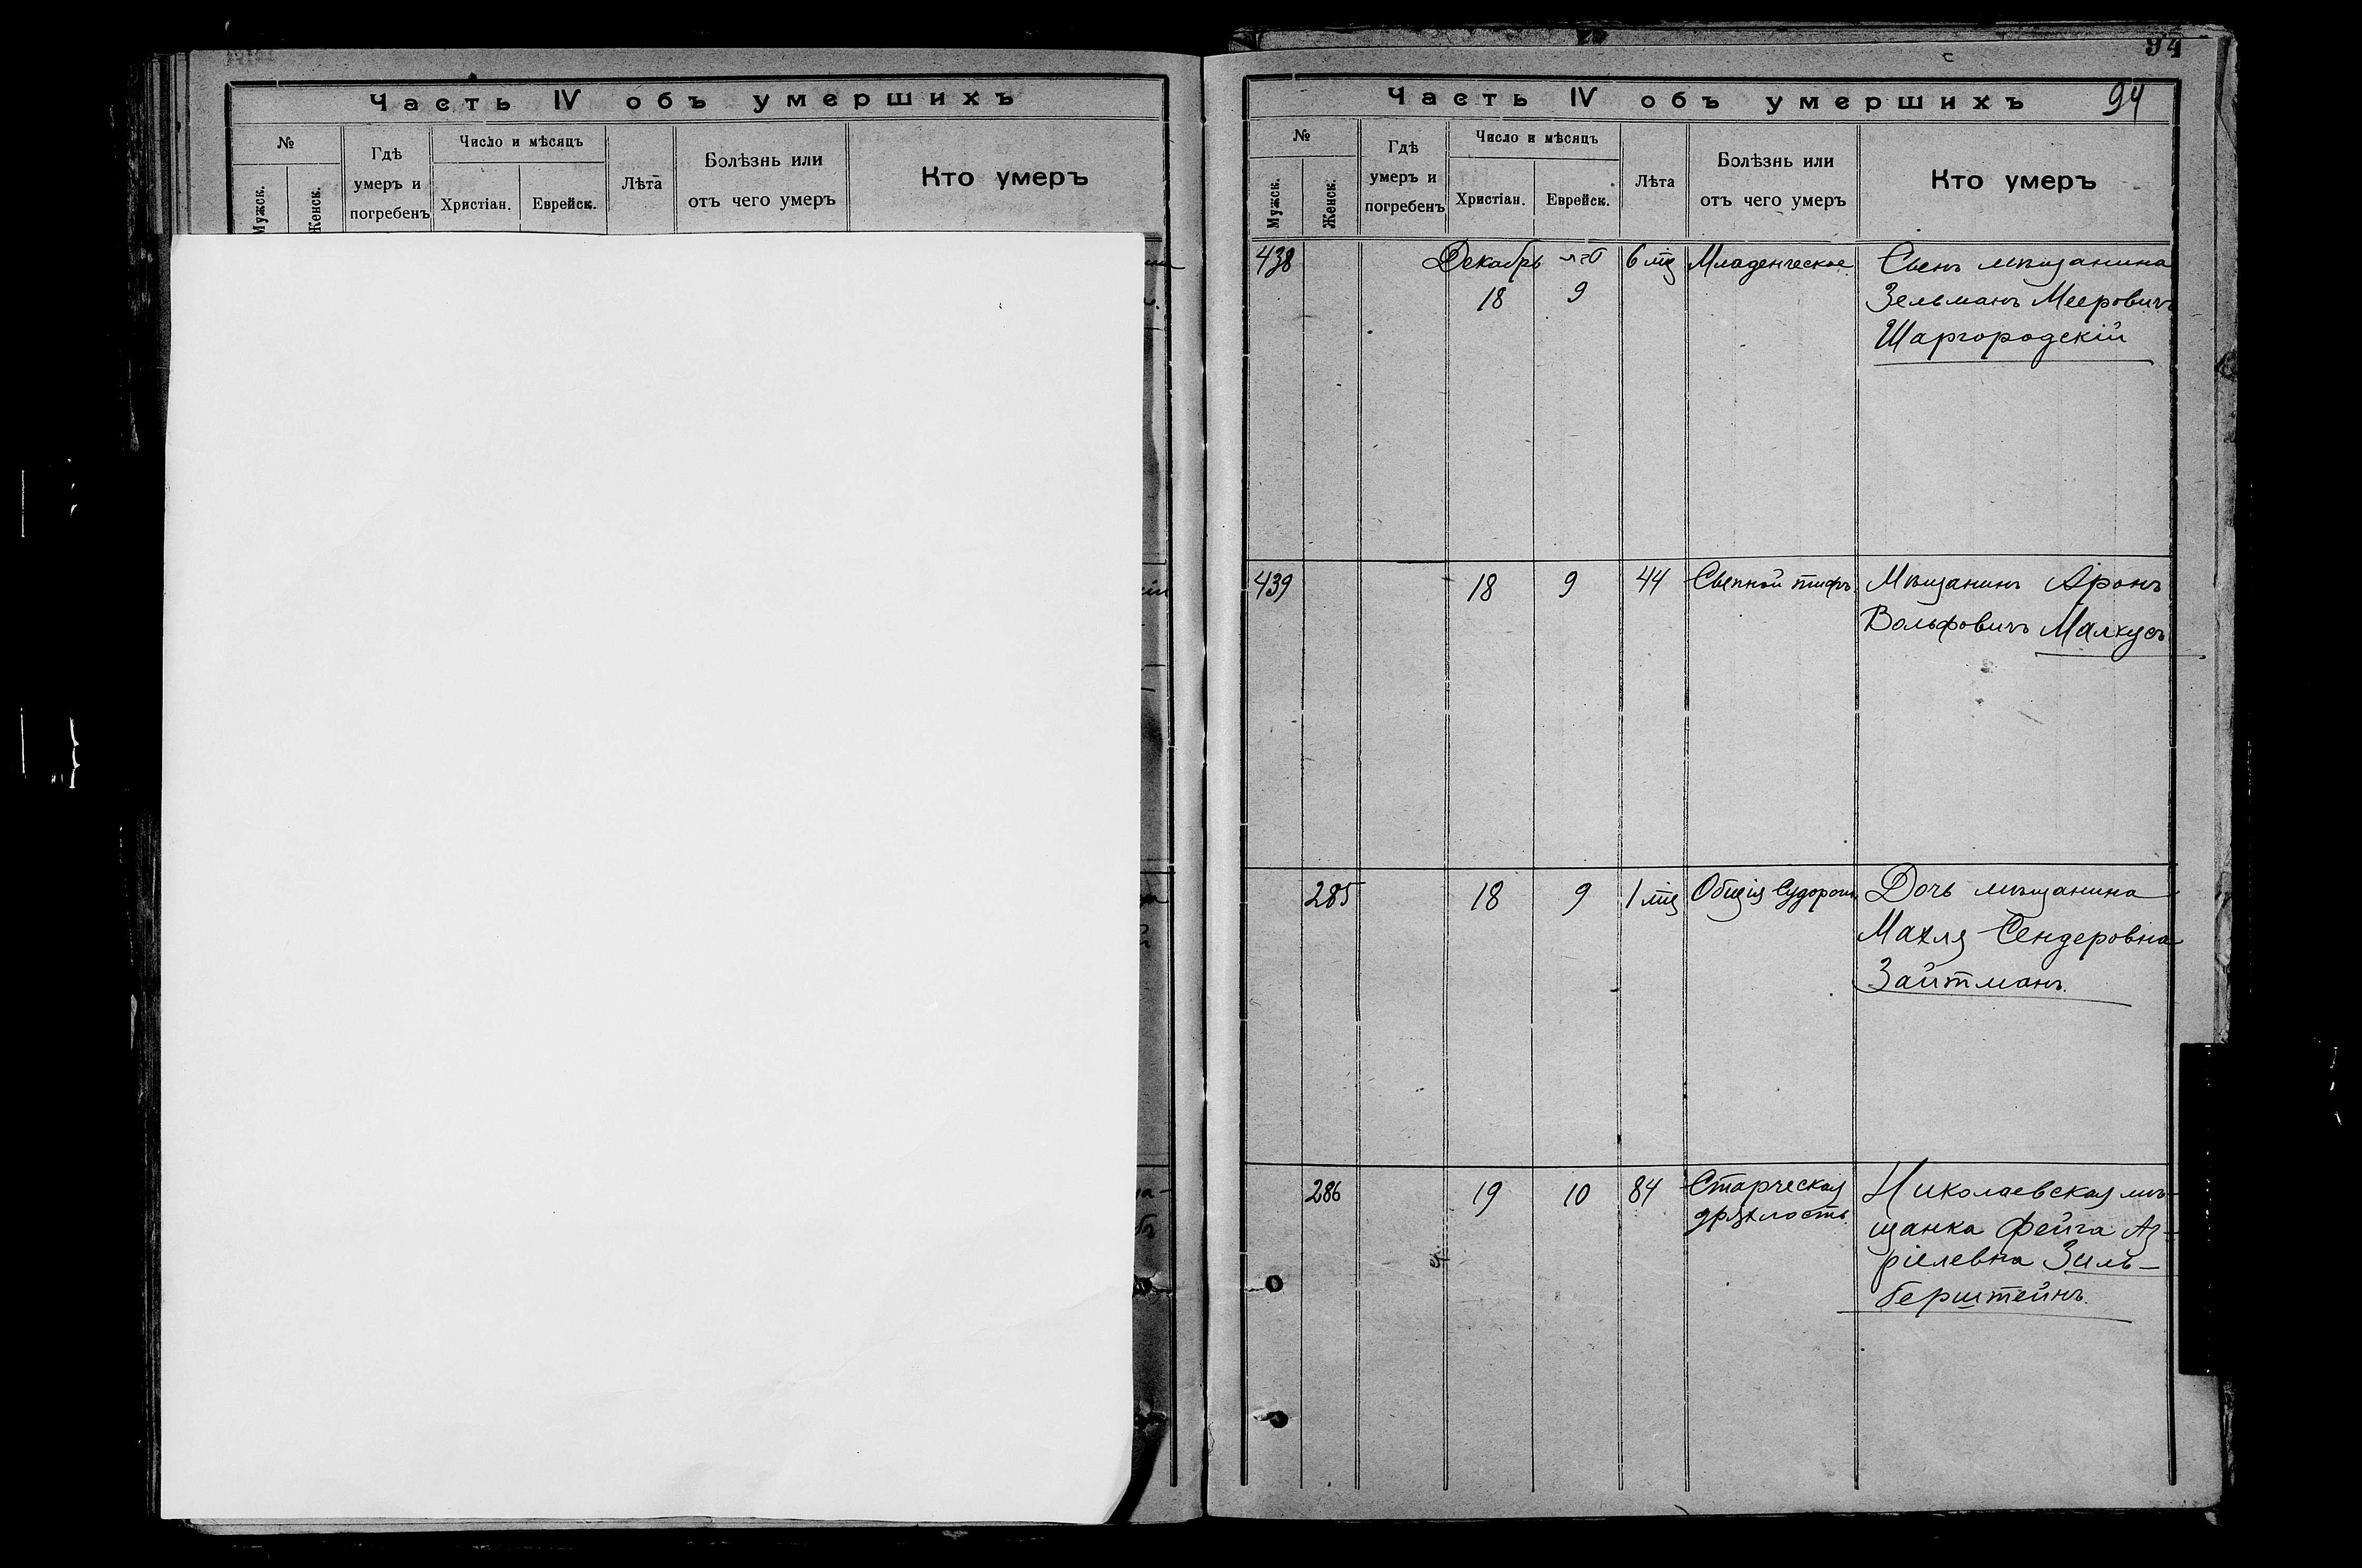 Часть IV объ умершихъ
№
Мужск.
Женск.
Гдѣ
умеръ и
погребенъ
Число и мѣсяцъ
Христіан.
Еврейск.
Лѣта
Болѣзнь или
отъ чего умеръ
Кто умеръ
94
Часть IV объ умершихъ
94
№
Мужск.
Женск.
Гдѣ
умеръ и
погребенъ
Число и мѣсяцъ
Христіан.
Еврейск.
Лѣта
Болѣзнь или
отъ чего умеръ
Кто умеръ
438
Декабрь
18
9
6 мц
Младенческое
Сынъ мѣщанина
Зельманъ Мееровичъ
Шаргородскій
439
18
9
44
Сыпной тифъ
Мѣщанинъ Аронъ
Вольфовичъ Малкусъ
285
18
9
1 мц
Общія Судороги
Дочь мѣщанина
Махля Сендеровна
Зайтманъ.
286
19
10
84
Старческая
дряхлость
Николаевская мѣ-
щанка Фейга Аз-
ріелевна Зиль-
берштейнъ.